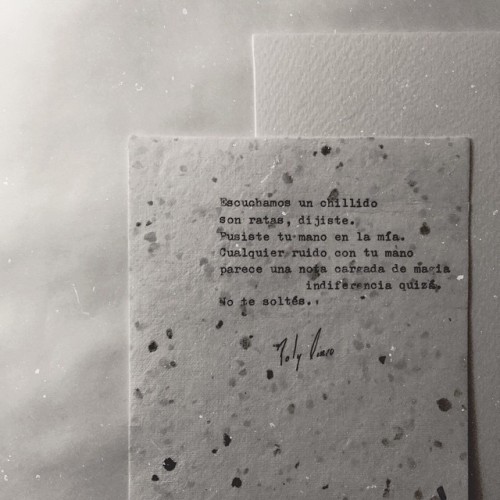 Escuchamos un chillido
son ratas, dijiste.
Pusiste tu mano en la mía.
Cualquier ruido con tu mano
parece una nota cargada de magia
indiferencia quizá.
No te soltés.